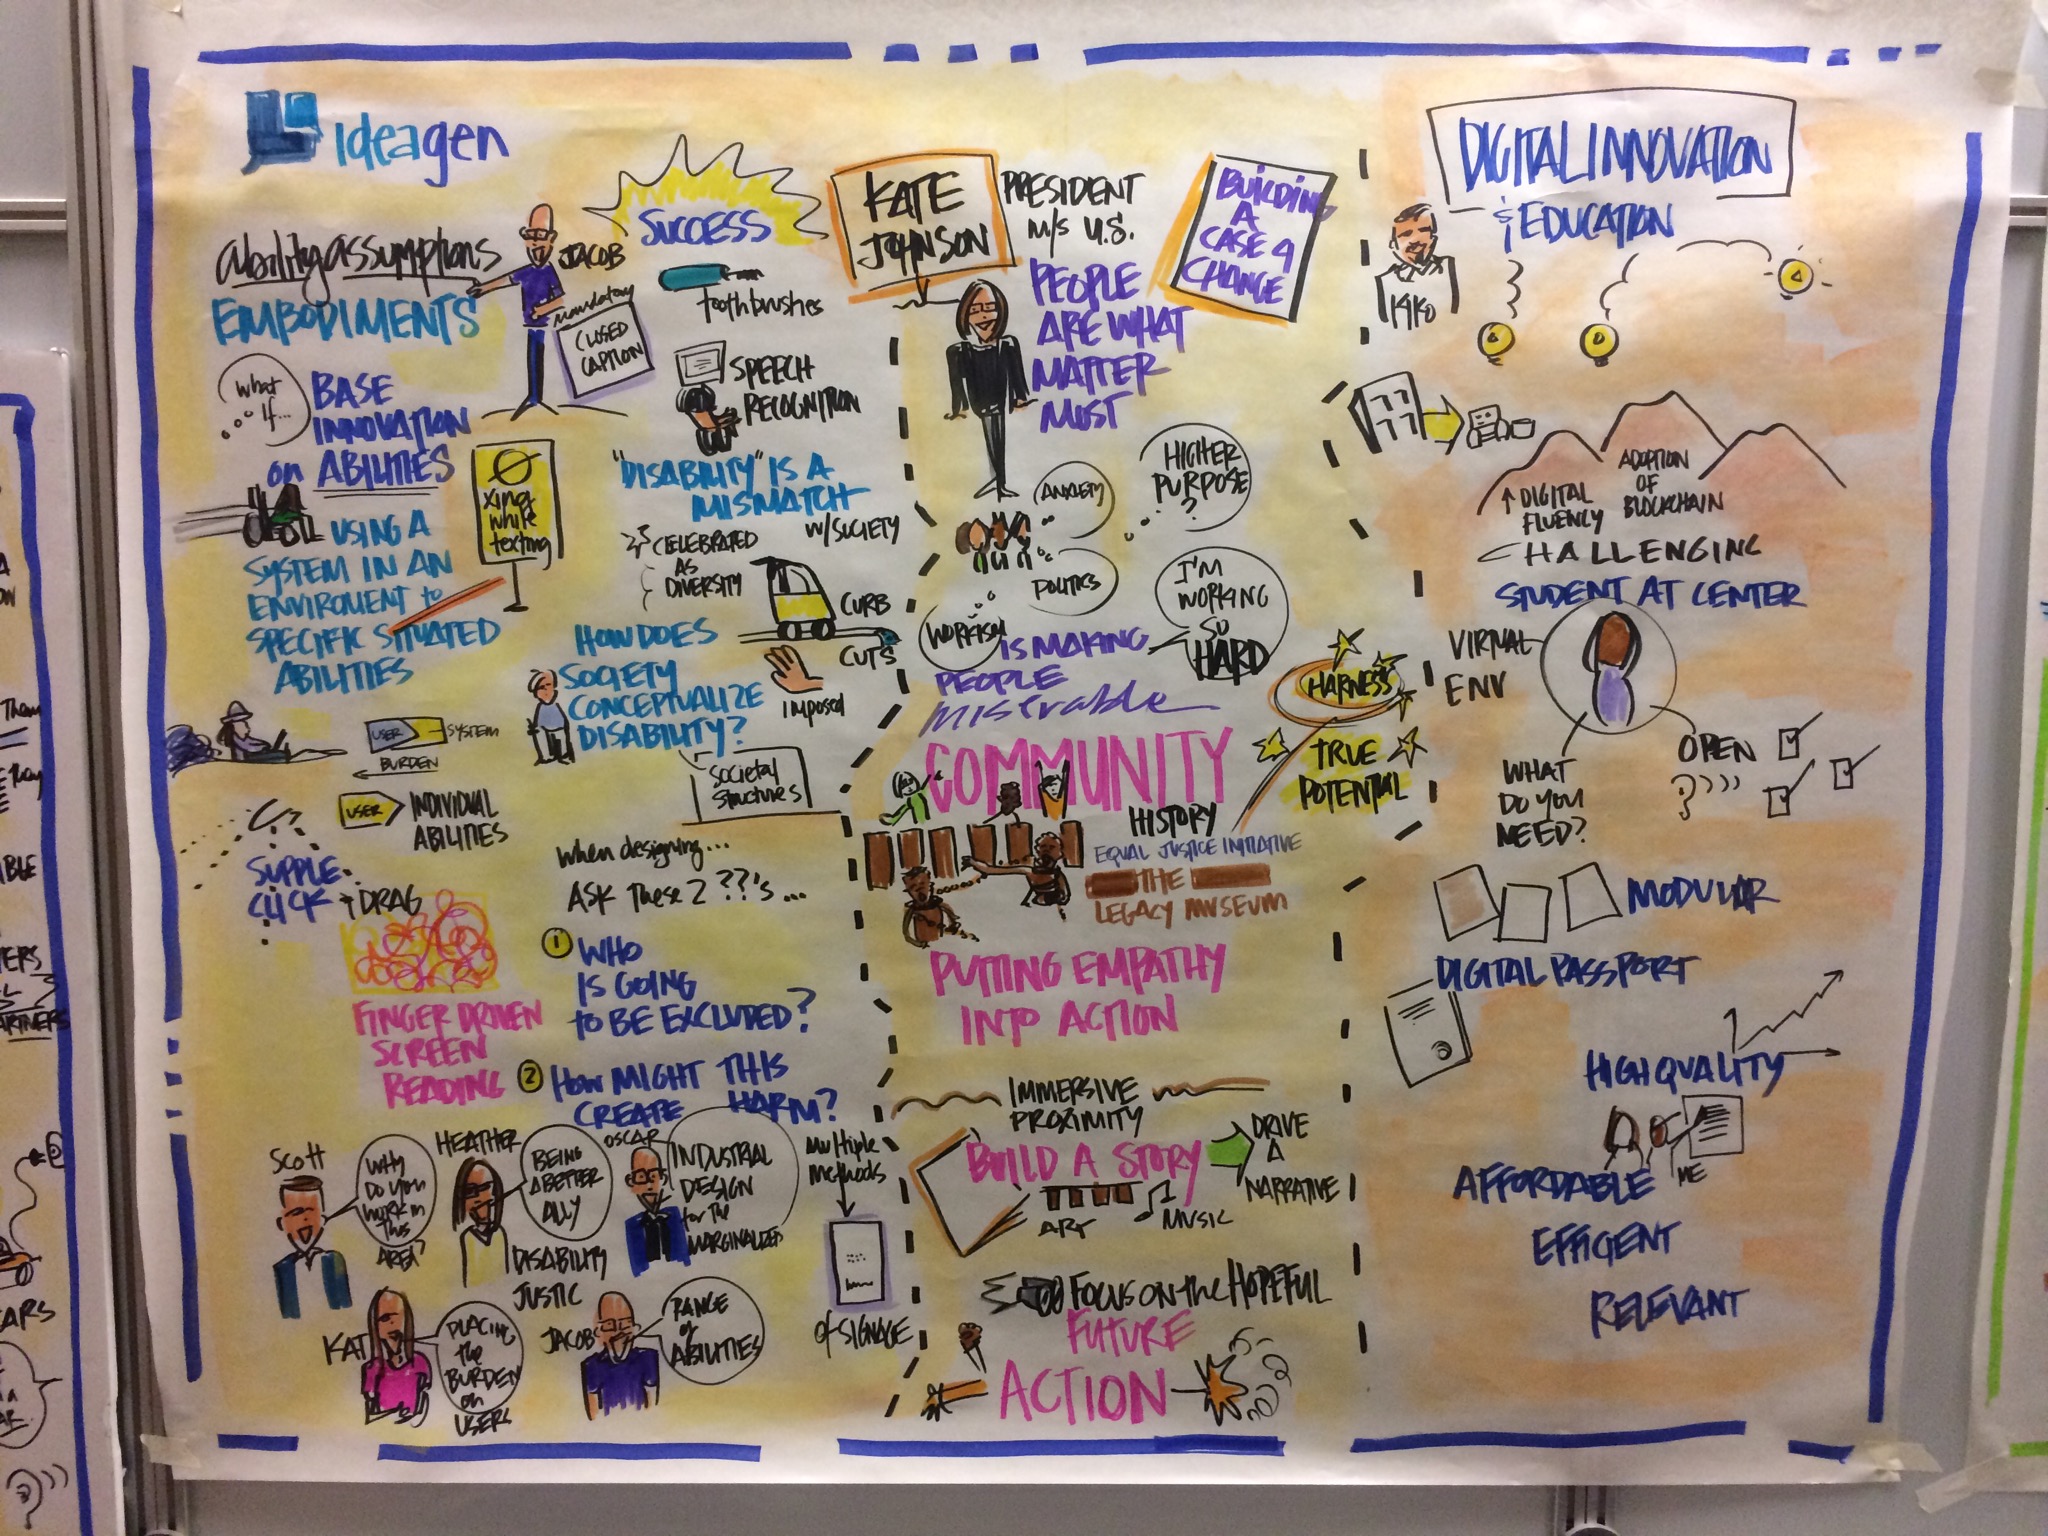 Ideagen
ability assumptions
EMBODIMENTS
JACOB
mandatory
CLOSED
CAPTION
What
If...
BASE
INNOVATION
on ABILITIES
xing
white
texting
USING A
SYSTEM IN AN
ENVIROMENT to
SPECIFIC SITUATED
ABILITIES
USER
SYSTEM
BURDEN
USER
INDIVIDUAL
ABILITIES
SUPPLE
CLICK
DRAG
FINGER DRIVEN
SCREEN
READING
SUCCESS
toothbrushes
SPEECH
RECOGNITION
"DISABILITY" IS A
MISMATCH
W/SOCIETY
CELEBRATED
AS
DIVERSITY
CURB
CUTS
HOW DOES
SOCIETY
CONCEPTUALIZE
DISABILITY?
imposed
Societal
Structures
When designing...
ASK These 2 ??'s...
1 WHO
IS GOING
to BE EXCLUDED?
2 HOW MIGHT THIS
CREATE HARM?
Scott
WHY
DO YOU
WORK in
THIS
AREA?
HEATHER
BEING
A BETTER
ALLY
DISABILITY
JUSTIC
OSCAR
INDUSTRIAL
DESIGN
for the
MARGINALIZED
KAT
PLACING
the
BURDEN
on
USERS
JACOB
RANGE
of
ABILITIES
multiple
methods
of SIGNAGE
KATE
JOHNSON
PRESIDENT
M/S U.S.
BUILDING
A
CASE 4
CHANGE
PEOPLE
ARE WHAT
MATTER
MOST
ANXIETY
HIGHER
PURPOSE
?
POLITICS
I'M
WORKING
SO
HARD
WORKISM
IS MAKING
PEOPLE
MISERABLE
HARNESS
TRUE
POTENTIAL
COMMUNITY
HISTORY
EQUAL JUSTICE INITIATIVE
THE
LEGACY MUSEUM
PUTTING EMPATHY
INTO ACTION
IMMERSIVE
PROXIMITY
BUILD A STORY
DRIVE
A
NARRATIVE
ART
MUSIC
FOCUS ON the HOPEFUL
FUTURE
ACTION
DIGITAL INNOVATION
& EDUCATION
KIKO
↑ DIGITAL
FLUENCY
ADOPTION
OF
BLOCKCHAIN
CHALLENGING
STUDENT AT CENTER
VIRNAL
ENV
WHAT
DO YOU
NEED?
OPEN
MODULAR
DIGITAL PASSPORT
HIGH QUALITY
ME
AFFORDABLE
EFFICIENT
RELEVANT